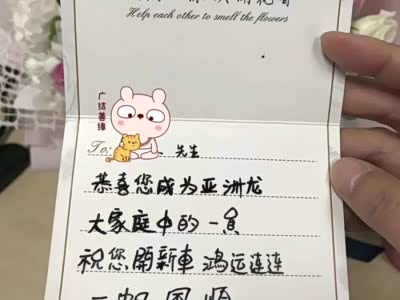 Help each other to smell the flowers
广结善缘
To: 先生
恭喜您成为亚洲龙
大家庭中的一员
祝您開新車 鸿运连连
一帆风顺